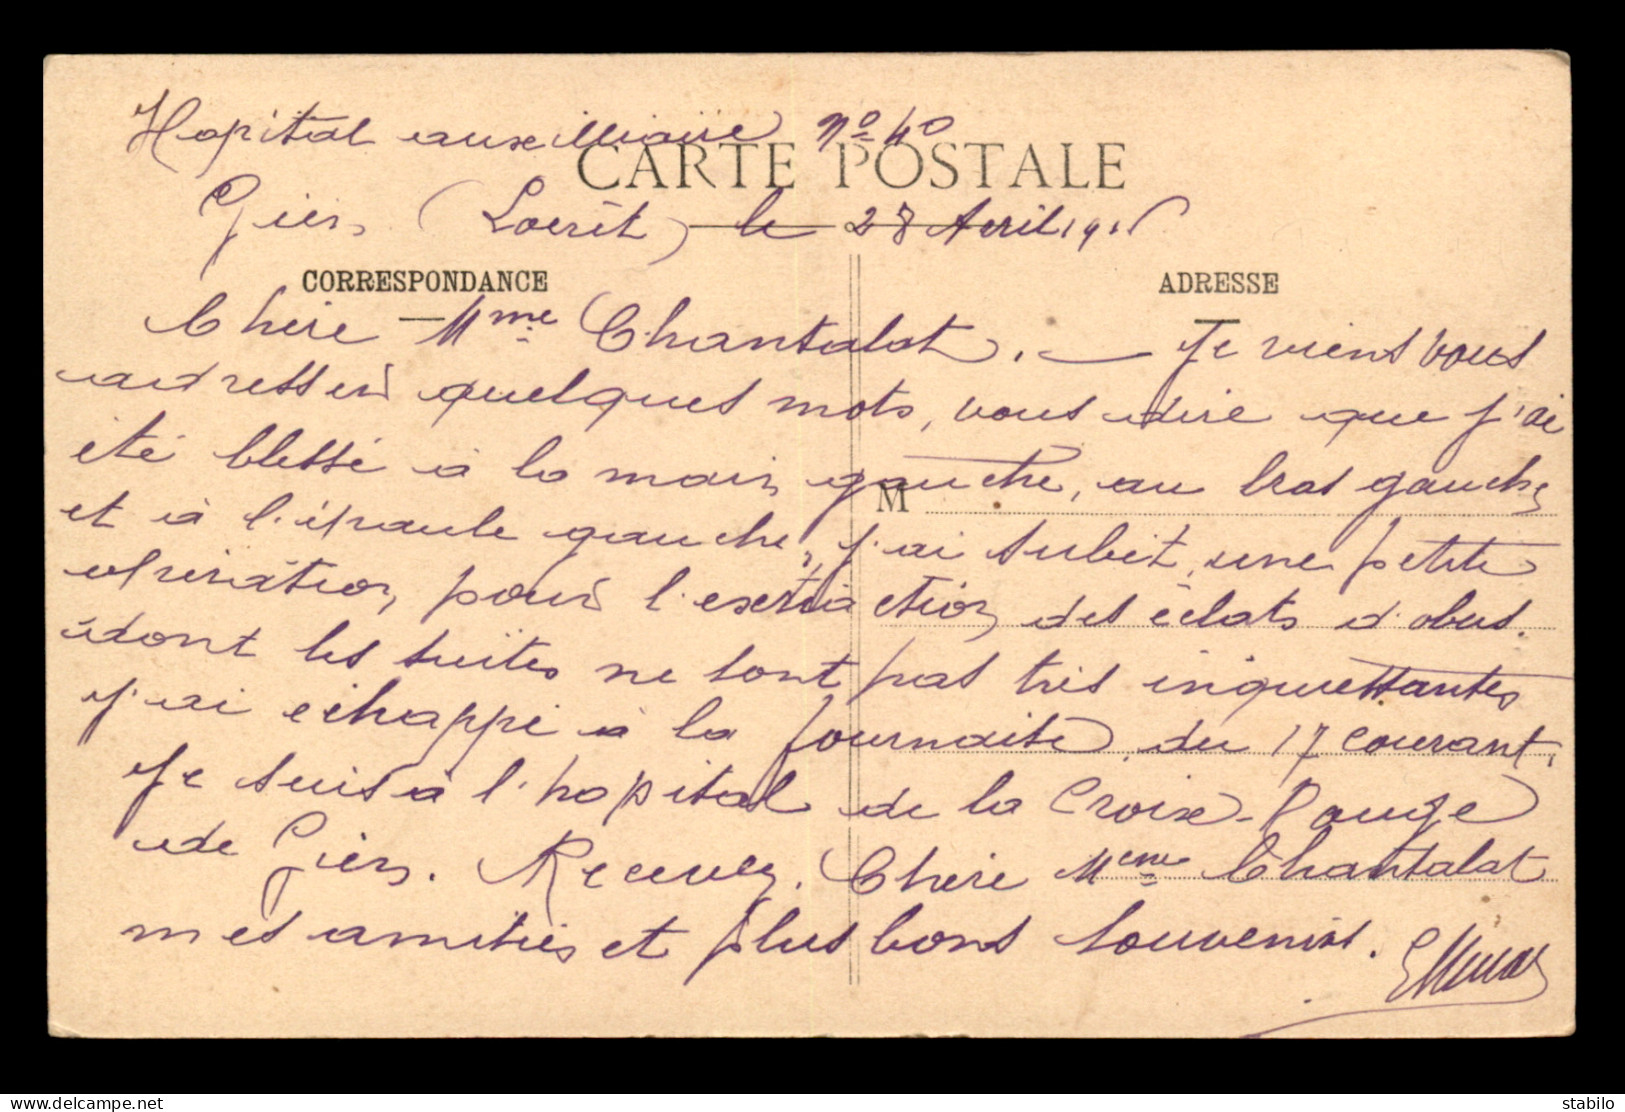 Hopital auxilliaire No 40
CARTE POSTALE
Gien (Loirêt) le 28 Avril 1915
CORRESPONDANCE
ADRESSE
Chère Mme Chantalat. — Je viens vous
adresser quelques mots, vous dire que j'ai
été blessé à la main gauche, au bras gauche
M
et à l'épaule gauche, j'ai subit une petite
opération, pour l'extraction des éclats d'obus.
dont les suites ne sont pas très inquiettantes
j'ai échappé à la fournaise du 17 courant,
Je suis à l'hopital de la Croix-Rouge
de Gien. Recevez, Chère Mme Chantalat
mes amitiés et plus bons souvenirs.
stabilo